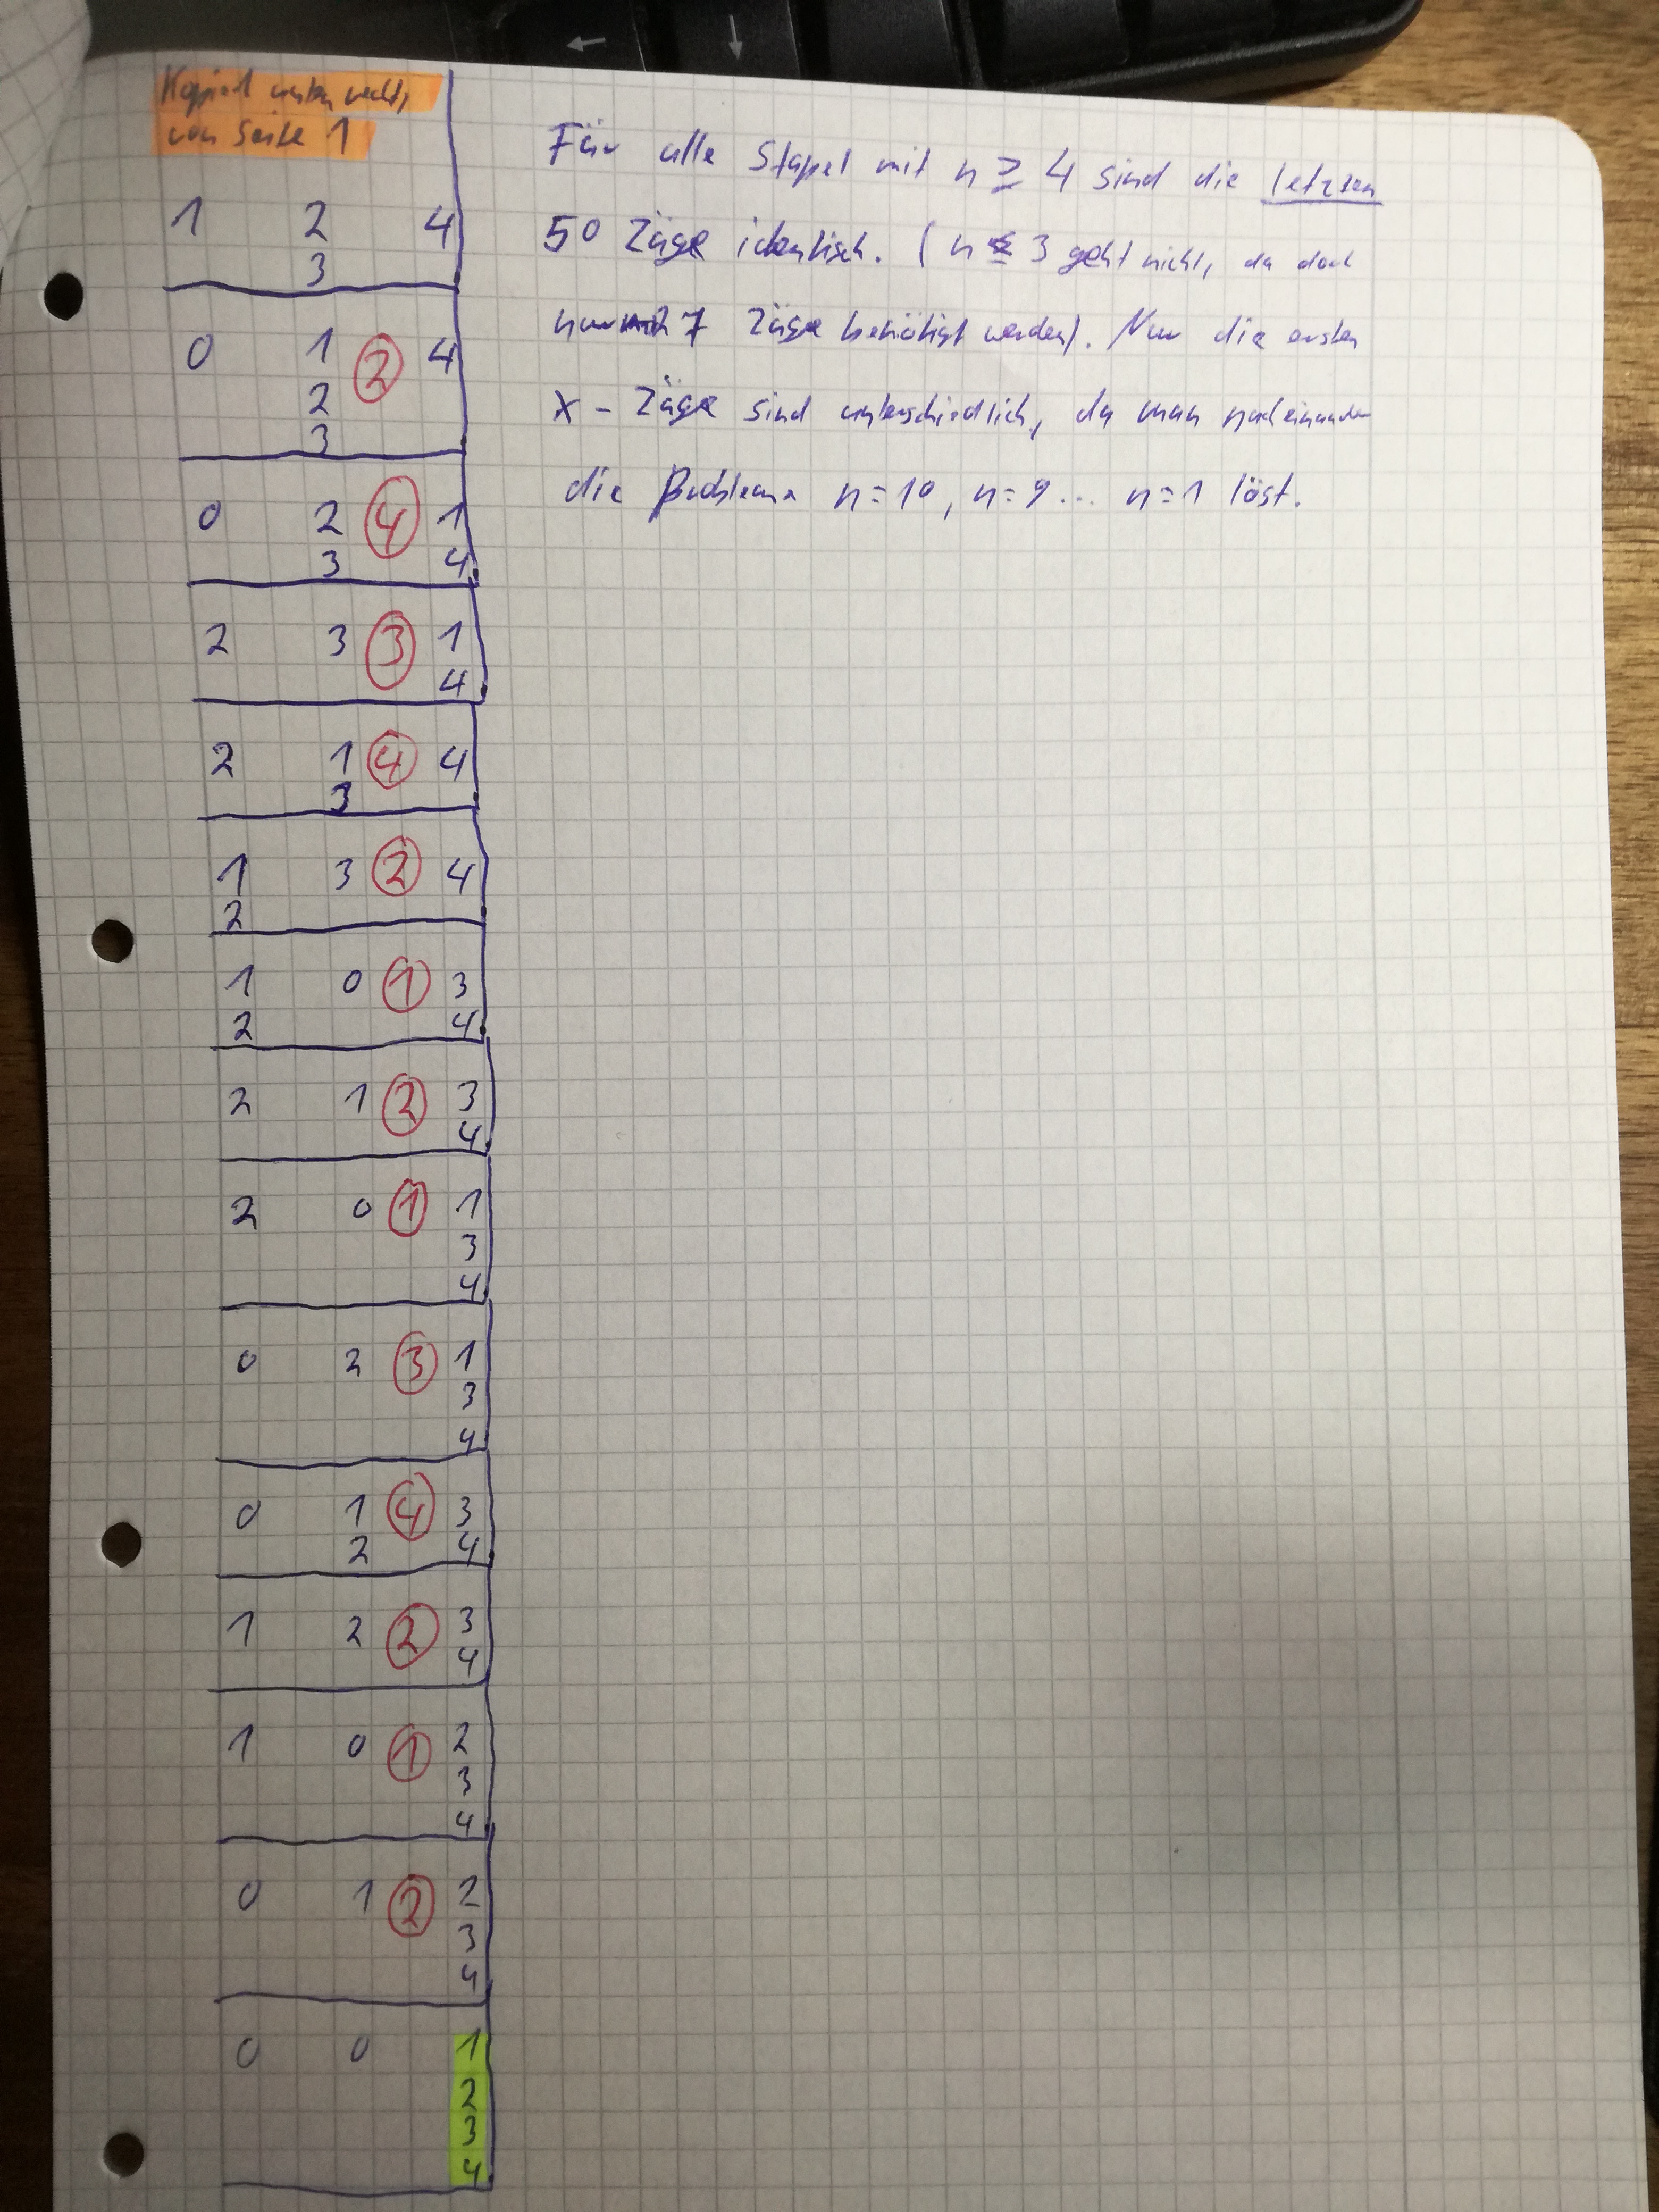 Kopiert unten rechts,
von Seite 1
1 2 4
3
0 1 2 4
2
3
0 2 4 1
3 4
2 3 3 1
4
2 1 4 4
3
1 3 2 4
2
1 0 1 3
2 4
2 1 2 3
4
2 0 1 1
3
4
0 2 3 1
3
4
0 1 4 3
2 4
1 2 2 3
4
1 0 1 2
3
4
0 1 2 2
3
4
0 0 1
2
3
4
Für alle Stapel mit n ≥ 4 sind die letzten
50 Züge identisch. (n ≤ 3 geht nicht, da dort
nur 7 Züge benötigt werden). Nur die ersten
x - Züge sind unterschiedlich, da man nacheinander
die Probleme n=10, n=9 ... n=1 löst.